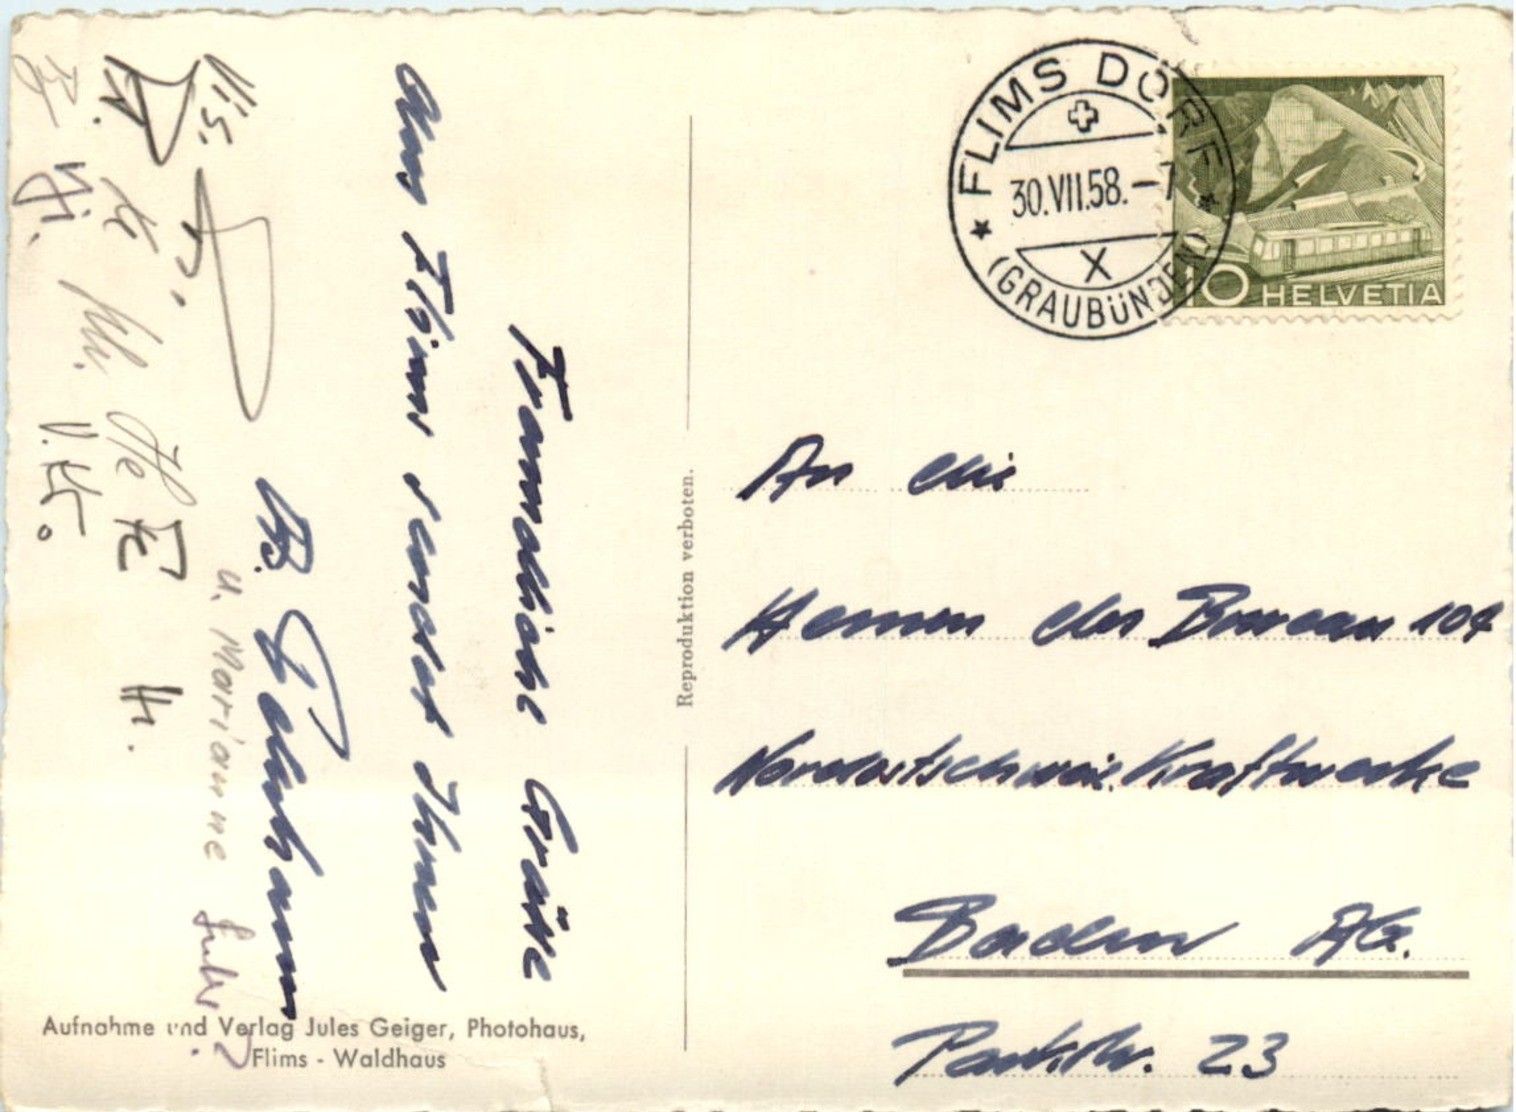 FLIMS DORF
30.VII.58.-7
X
(GRAUBÜNDEN)
10 HELVETIA
Freundliche Grüsse
aus Flims sendet Ihnen
B.
u. Marianne
Vis.
Hi.
An die
Herren des Bureau 104
Nordostschweiz. Kraftwerke
Baden AG.
Parkstr. 23
Reproduktion verboten.
Aufnahme und Verlag Jules Geiger, Photohaus,
Flims - Waldhaus